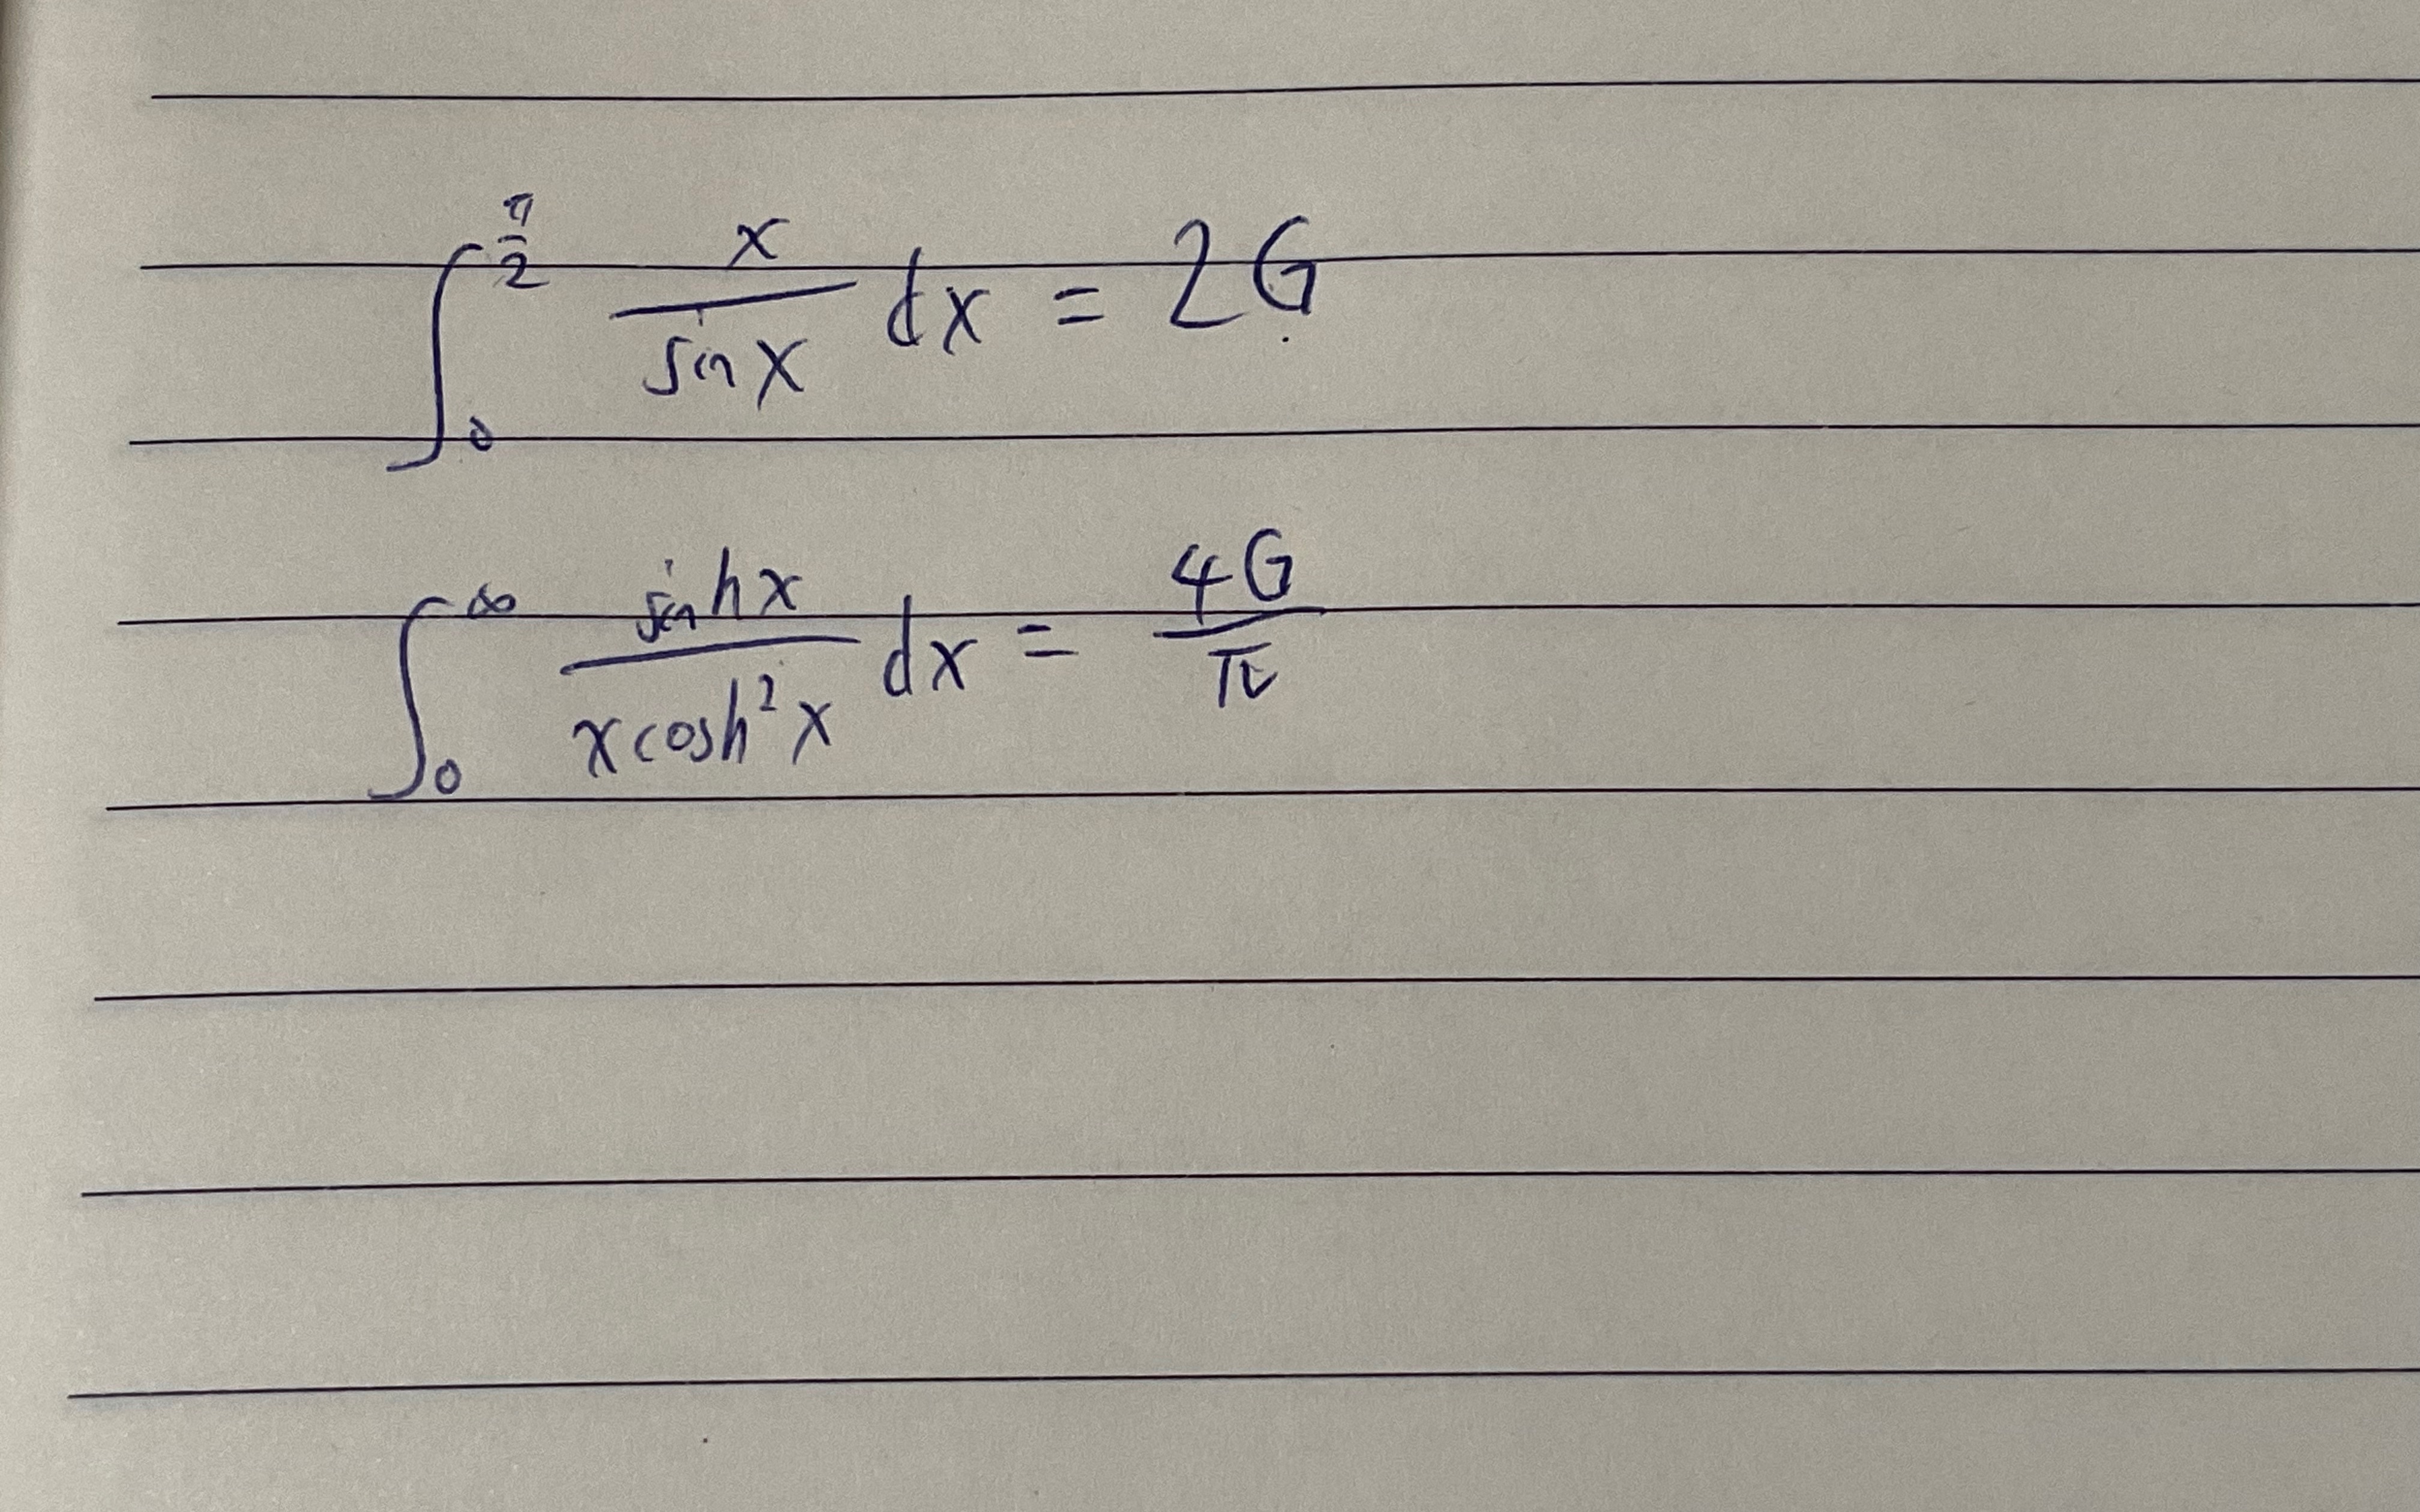 ∫₀^{π/2} x/(sin x) dx = 2G
∫₀^∞ (sinh x)/(x cosh² x) dx = 4G/π